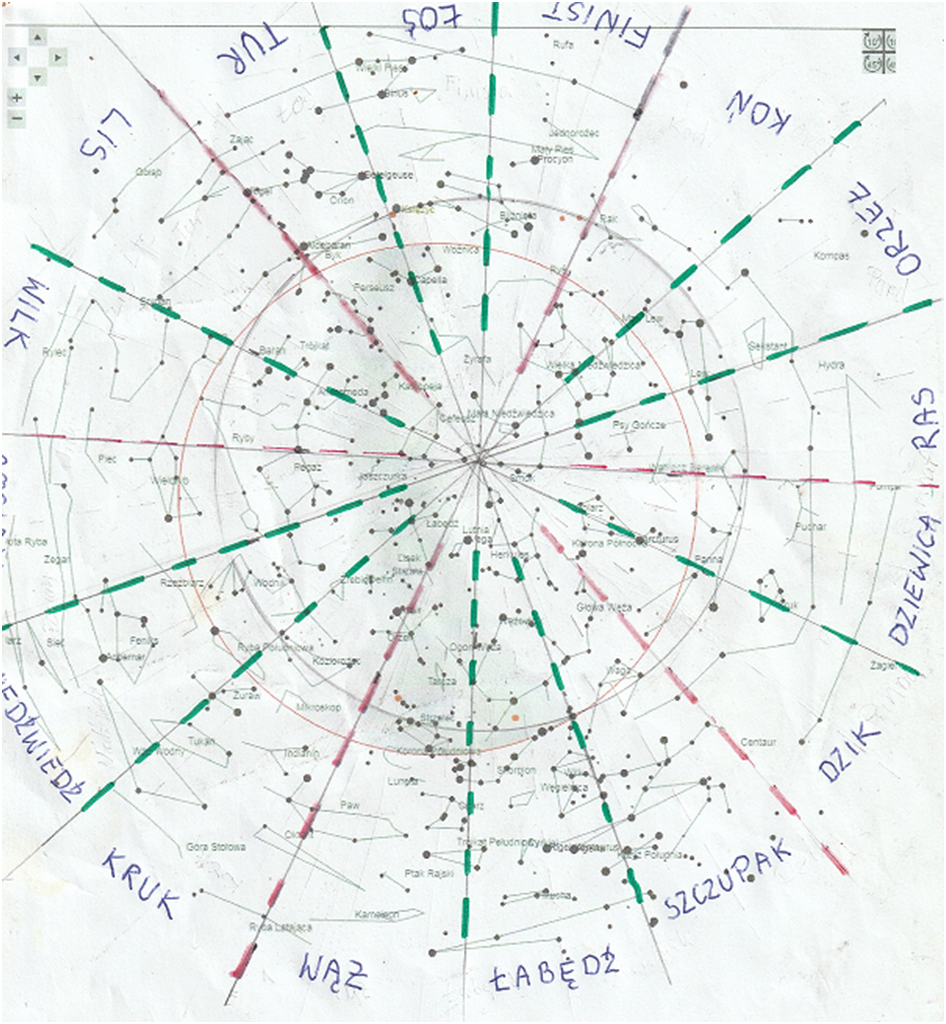 FINIST
ŁOŚ
TUR
Rufa
10°
45°
Wielki Pies
Syriusz
KOŃ
LIS
Zając
Jednorożec
Mały Pies
Procyon
Gołąb
Betelgeuse
Rigel
Orion
ORZEŁ
Bliźnięta
Rak
Aldebaran
Byk
Woźnica
Kompas
Ryś
Capella
Perseusz
WILK
Mały Lew
Rylec
Baran
Trójkąt
Żyrafa
Wielka Niedźwiedzica
Lew
Sekstant
Hydra
Andromeda
Kasjopeja
Cefeusz
Mała Niedźwiedzica
Psy Gończe
RAS
Ryby
Piec
Pegaz
Jaszczurka
Smok
Wieloryb
Łabędź
Lutnia
Vega
Puchar
Zegar
Lisek
Herkules
Korona Północna
Arcturus
Panna
Rzeźbiarz
Wodnik
Źrebię
Delfin
Strzała
Głowa Węża
Kruk
DZIEWICA
Sieć
Feniks
Achernar
Ryba Południowa
Koziorożec
Orzeł
Ogon Węża
Waga
Żagiel
Tarcza
Żuraw
Mikroskop
Strzelec
Wąż Wodny
Tukan
Indianin
Korona Południowa
Skorpion
Wilk
Węgielnica
Centaur
DZIK
Luneta
Paw
Ołtarz
Góra Stołowa
Trójkąt Południowy
Cyrkiel
Krzyż Południa
KRUK
Ptak Rajski
Mucha
SZCZUPAK
Kameleon
Ryba Latająca
WĄŻ
ŁABĘDŹ